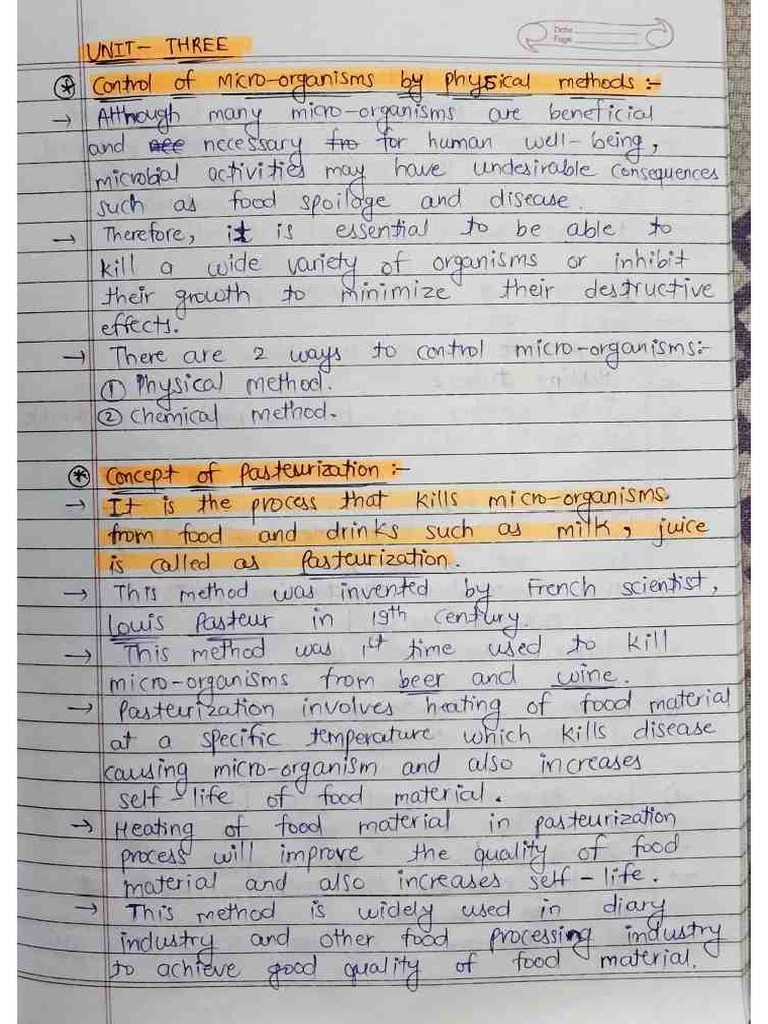 Date
Page
UNIT- THREE
Control of micro-organisms by physical methods :-
→ Although many micro-organisms are beneficial
and necessary for human well-being,
microbial activities may have undesirable consequences
such as food spoilage and disease.
→ Therefore, it is essential to be able to
kill a wide variety of organisms or inhibit
their growth to minimize their destructive
effects.
→ There are 2 ways to control micro-organisms:-
① Physical method.
② Chemical method.
Concept of Pasteurization :-
→ It is the process that kills micro-organisms.
from food and drinks such as milk, juice
is called as Pasteurization.
→ This method was invented by French scientist,
Louis Pasteur in 19th century.
→ This method was 1st time used to kill
micro-organisms from beer and wine.
→ Pasteurization involves heating of food material
at a specific temperature which kills disease
causing micro-organism and also increases
self-life of food material.
→ Heating of food material in pasteurization
process will improve the quality of food
material and also increases self-life.
→ This method is widely used in diary
industry and other food processing industry
to achieve good quality of food material.